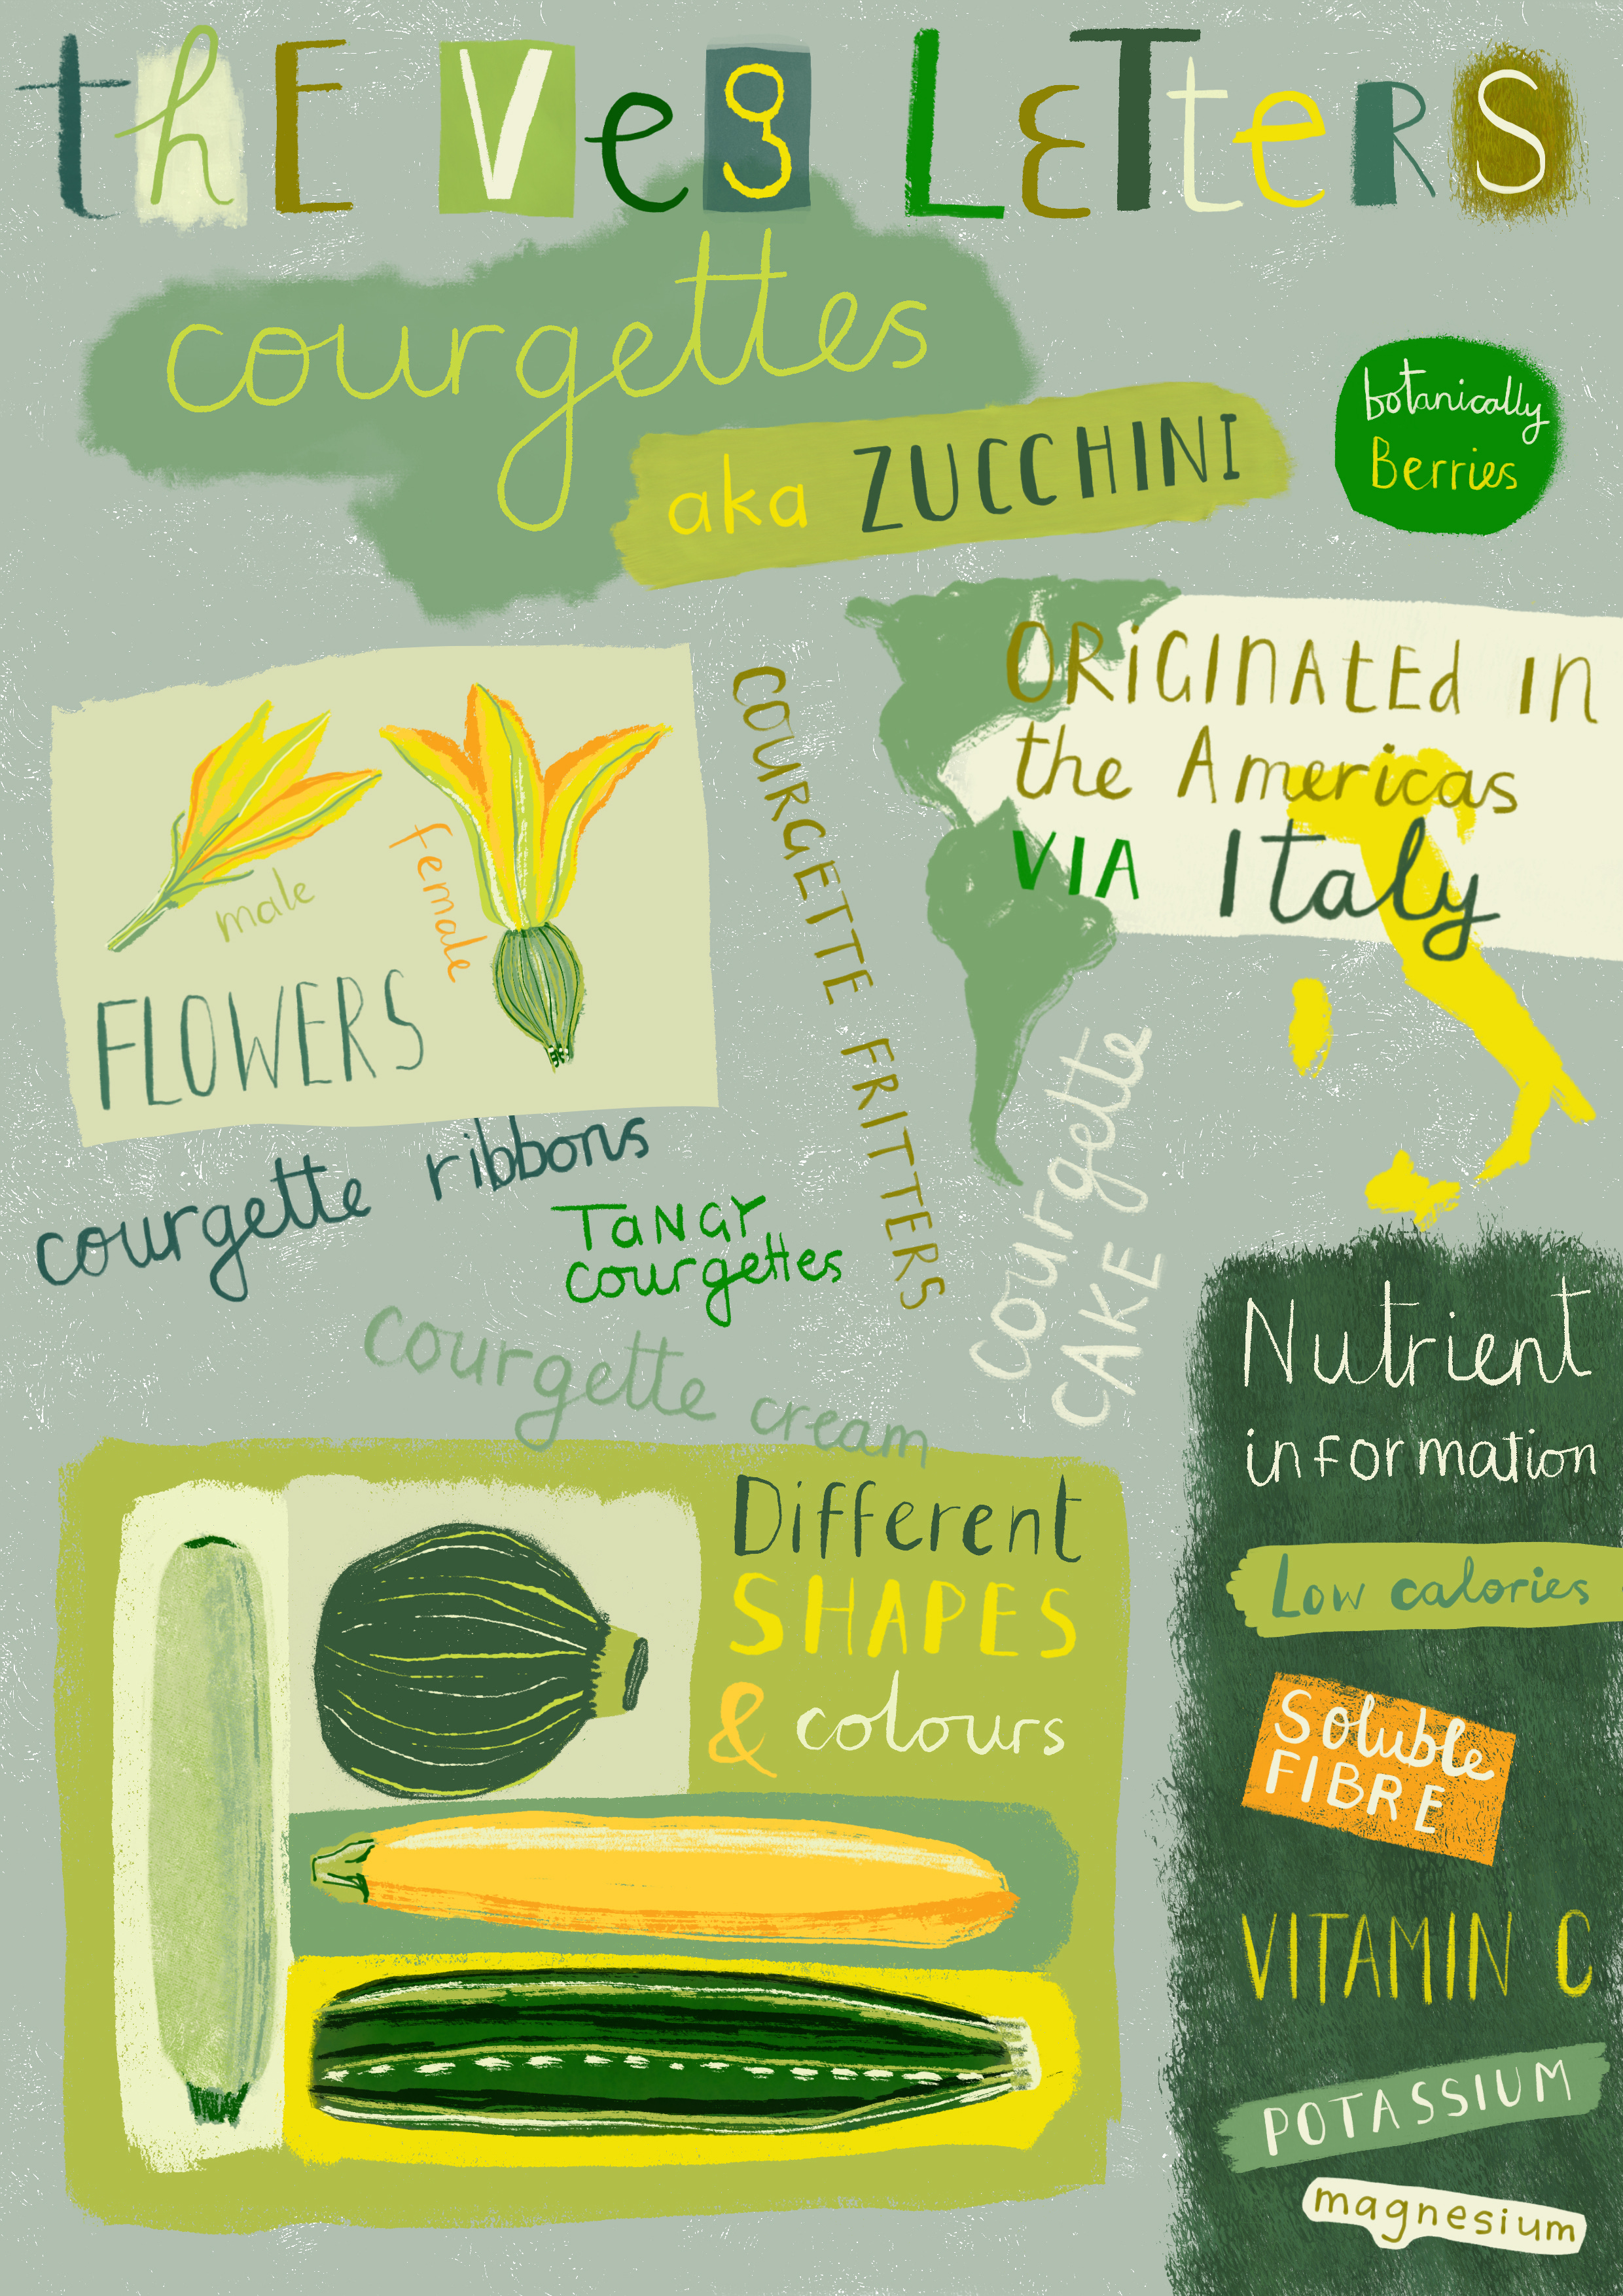 thE Veg LEtteRS
courgettes
aka ZUCCHINI
botanically
Berries
ORiGINAtEd IN
the Americas
VIA Italy
male
female
FLOWERS
COURGETTE FRITTERS
courgette ribbons
TaNGY
courgettes
courgette cream
Courgette
CAKE
Different
SHAPES
& colours
Nutrient
information
Low calories
Soluble
FIBRE
VITAMIN C
POTASSIUM
magnesium